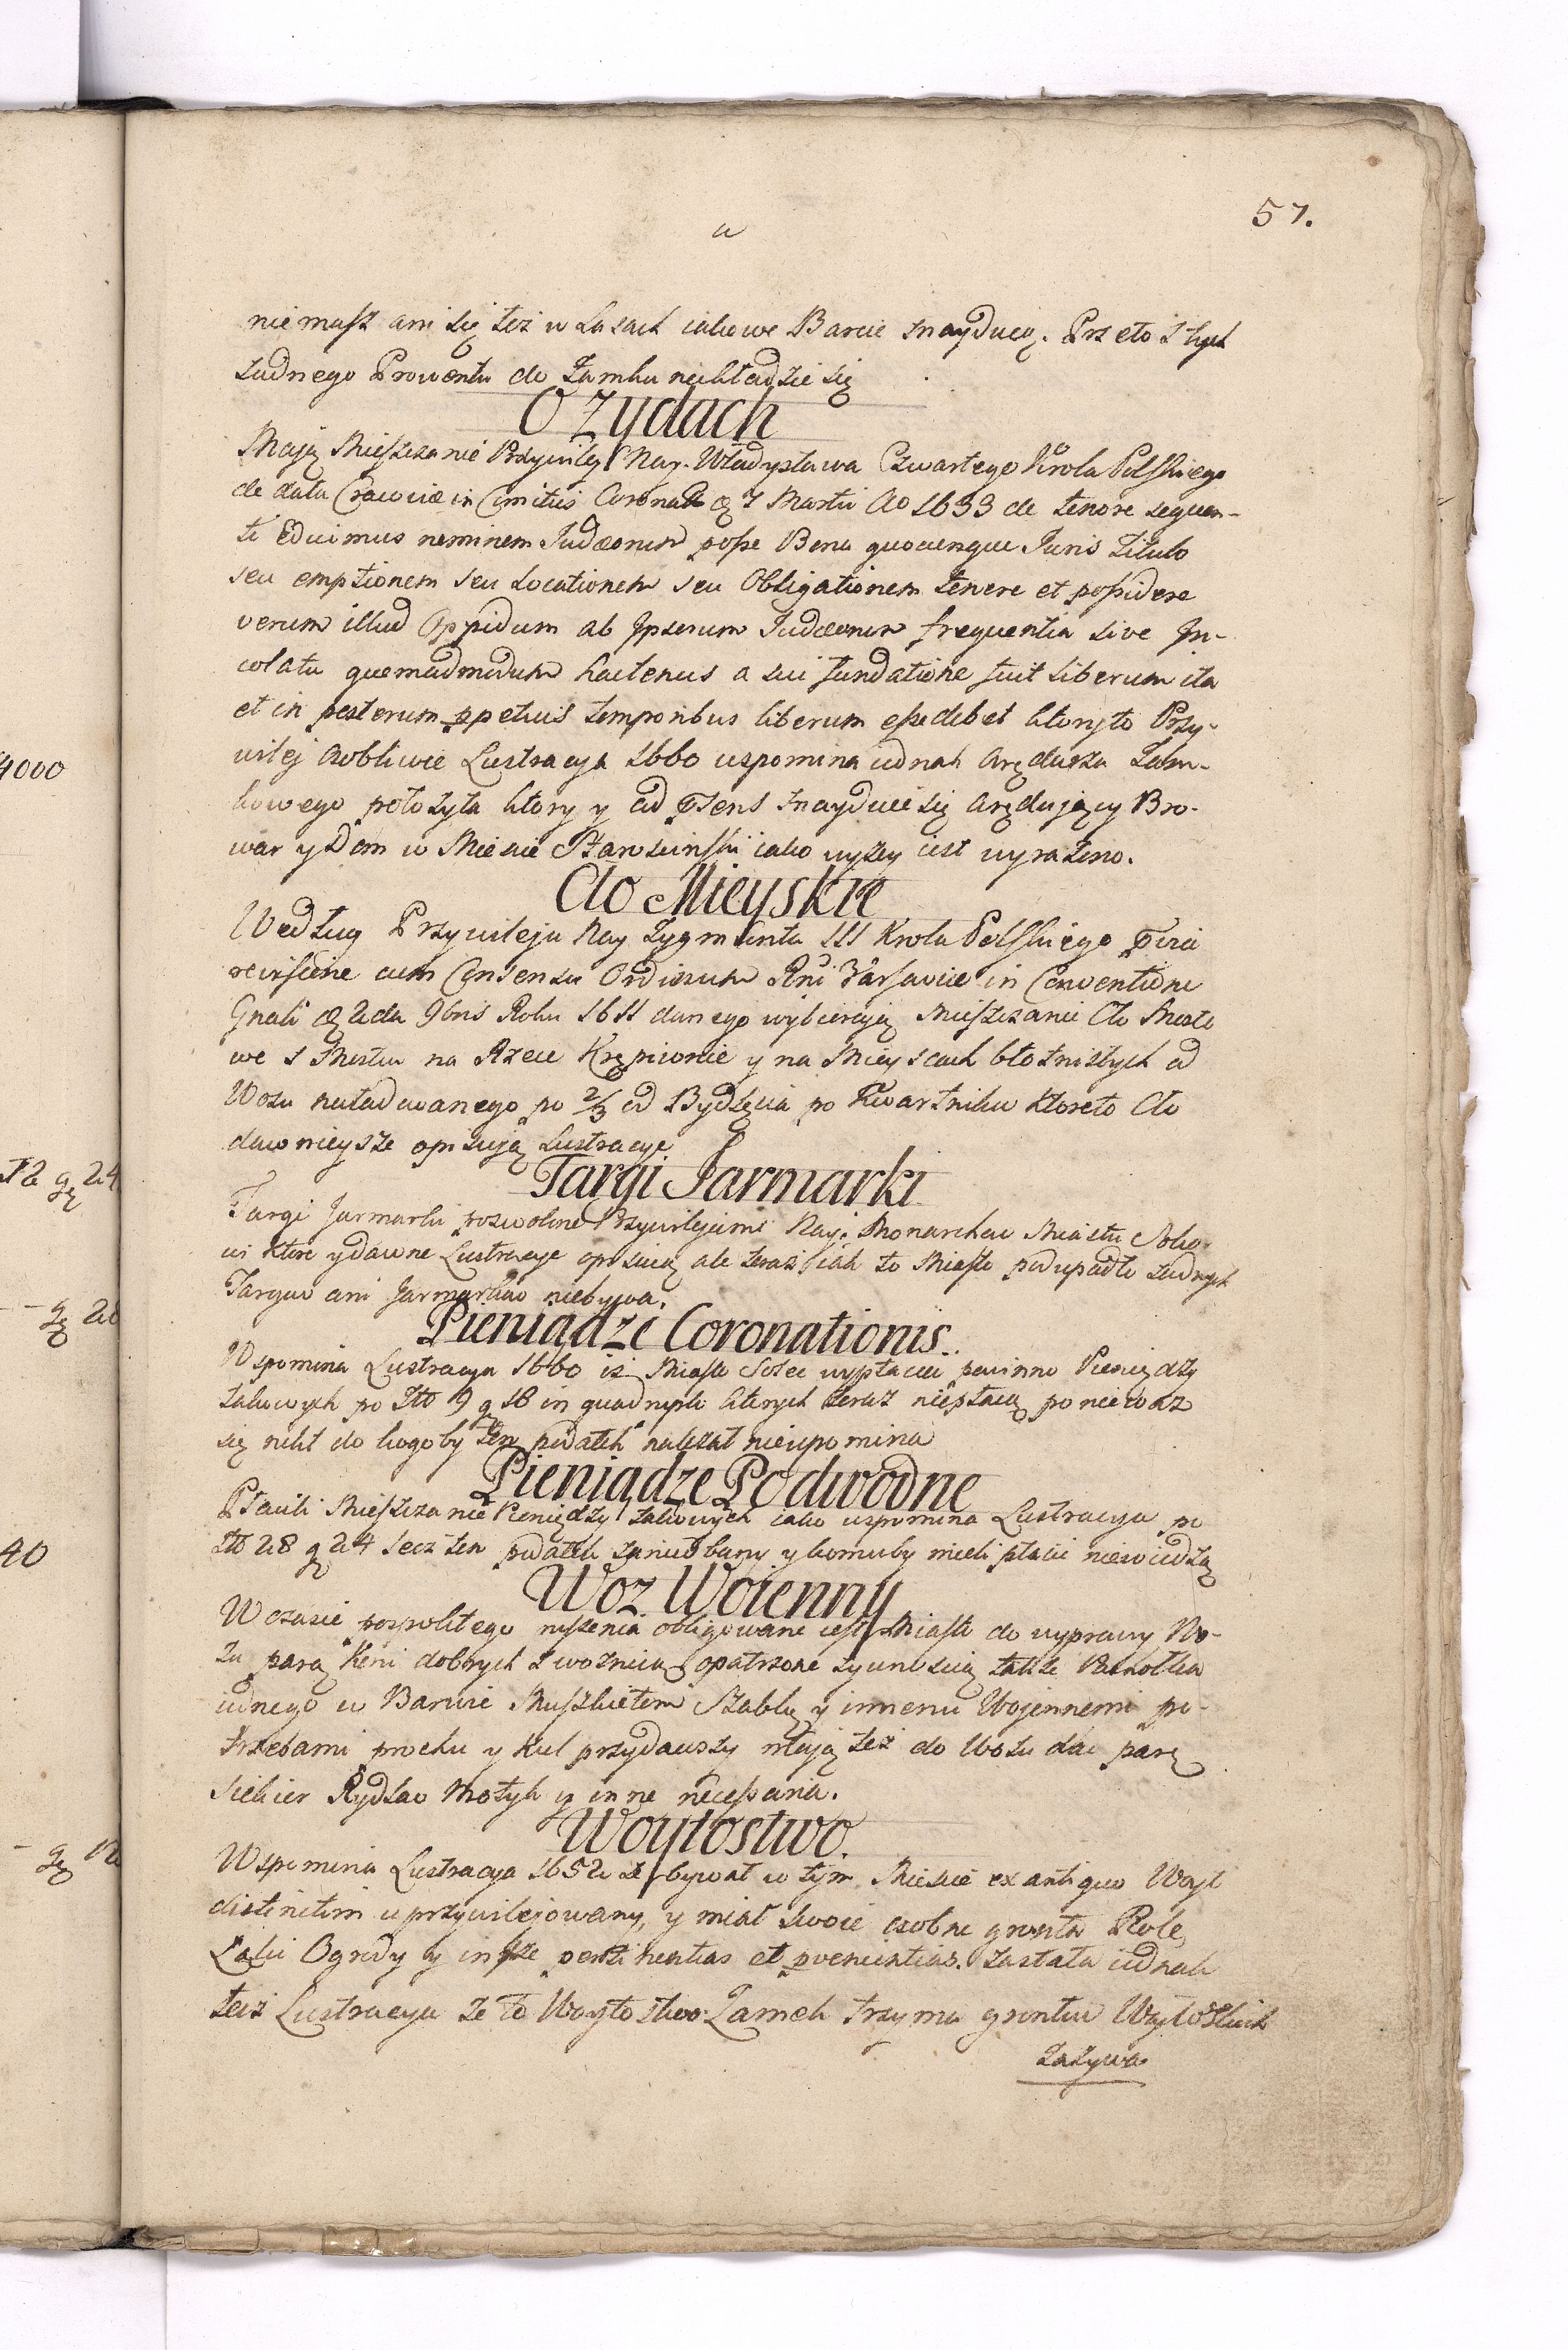 57.
niemasz ani się też w Lasach iakowe Barcie znayduią. Przeto z tych
żadnego Prowentu do Zamku niekładzie się
O Zydach
Maią Mieszczanie Przywiley Nay. Władysława Czwartego Krola Polskiego
de data Cracoviæ in Comitiis Coronaō 7 Martii Ao 1633 de tenore sequen-
ti Edicimus neminem Judæorum posse Bona quocunque Juris Titulo
seu emptionem seu Locationem seu Obligationem tenere et possidere
verum illud Oppidum ab Ipsorum Judæorum frequentia sive In-
colatu quemadmodum hactenus a sui fundatione fuit liberum ita
et in posterum ppetuis temporibus liberum esse debet ktoryto Przy-
wilej osobliwie Lustracya 1660 wspomina iednak Arędarza Zam-
kowego położyła ktory y ad psens znayduie się Arędujący Bro-
war y Dom w Miescie Starosciński iako wyżey iest wyrażono.
Cło Mieyskie
Według Przywileju Nay Zygmunta III Krola Polskiego
cum Consensu Ordinum Rni Varsaviæ in Conventione
Gnali 9bris Roku 1611 danego wybieraią Mieszczanie Cło Mosto
we z Mostu na Rzece Krępionce y na Mieyscach błotnistych od
Wozu naładowanego po 2/3 od Bydlęcia po Kwartniku ktoreto Cło
dawnieysze opisują Lustracye
Targi Jarmarki
Targi Jarmarki pozwolone Przywilejami Nay: Monarchow Miastu Solco-
wi ktore y dawne Lustracye opisuią ale teraz iak to Miasto podupadło żadnych
Targow ani Jarmarkow niebywa.
Pieniądze Coronationis.
Wspomina Lustracya 1660 iż Miasto Solec wypłacać powinno Pieniędzy
takowych po Złł 9 g 18 in quadruplo ktorych teraz niepłacą ponieważ
się nikt do kogoby ten podatek należał nieupomina
Pieniądze Podwodne
Płacili Mieszczanie Pieniędzy takowych iako wspomina Lustracya po
Złł 28 g 24 lecz ten podatek zaniedbany y komuby mieli płacić niewiedzą
Woz Woienny
W czasie pospolitego ruszenia obligowane iest Miasto do wyprawy Wo-
zu parą Koni dobrych z woznicą opatrzone żywnoscią także Pachołka
iednego w Barwie Muszkietem Szablą y innemi Wojennemi po-
trzebami prochu y Kul przydawszy maią też do Wozu dać parę
siekier Rydlow Motyk y inne necessaria.
Woytostwo.
Wspomina Lustracya 1652 że bywał w tym Miescie ex antiquo Woyt
distinctim uprzywilejowany, y miał swoie osobne grunta Role
Łąki Ogrody y insze pertinentias et pvenientias. Zastała iednak
też Lustracya że to Woytostwo Zamek trzyma gruntow Woytoskich
zażywa
4000
12 g 24
g 20
40
g 12